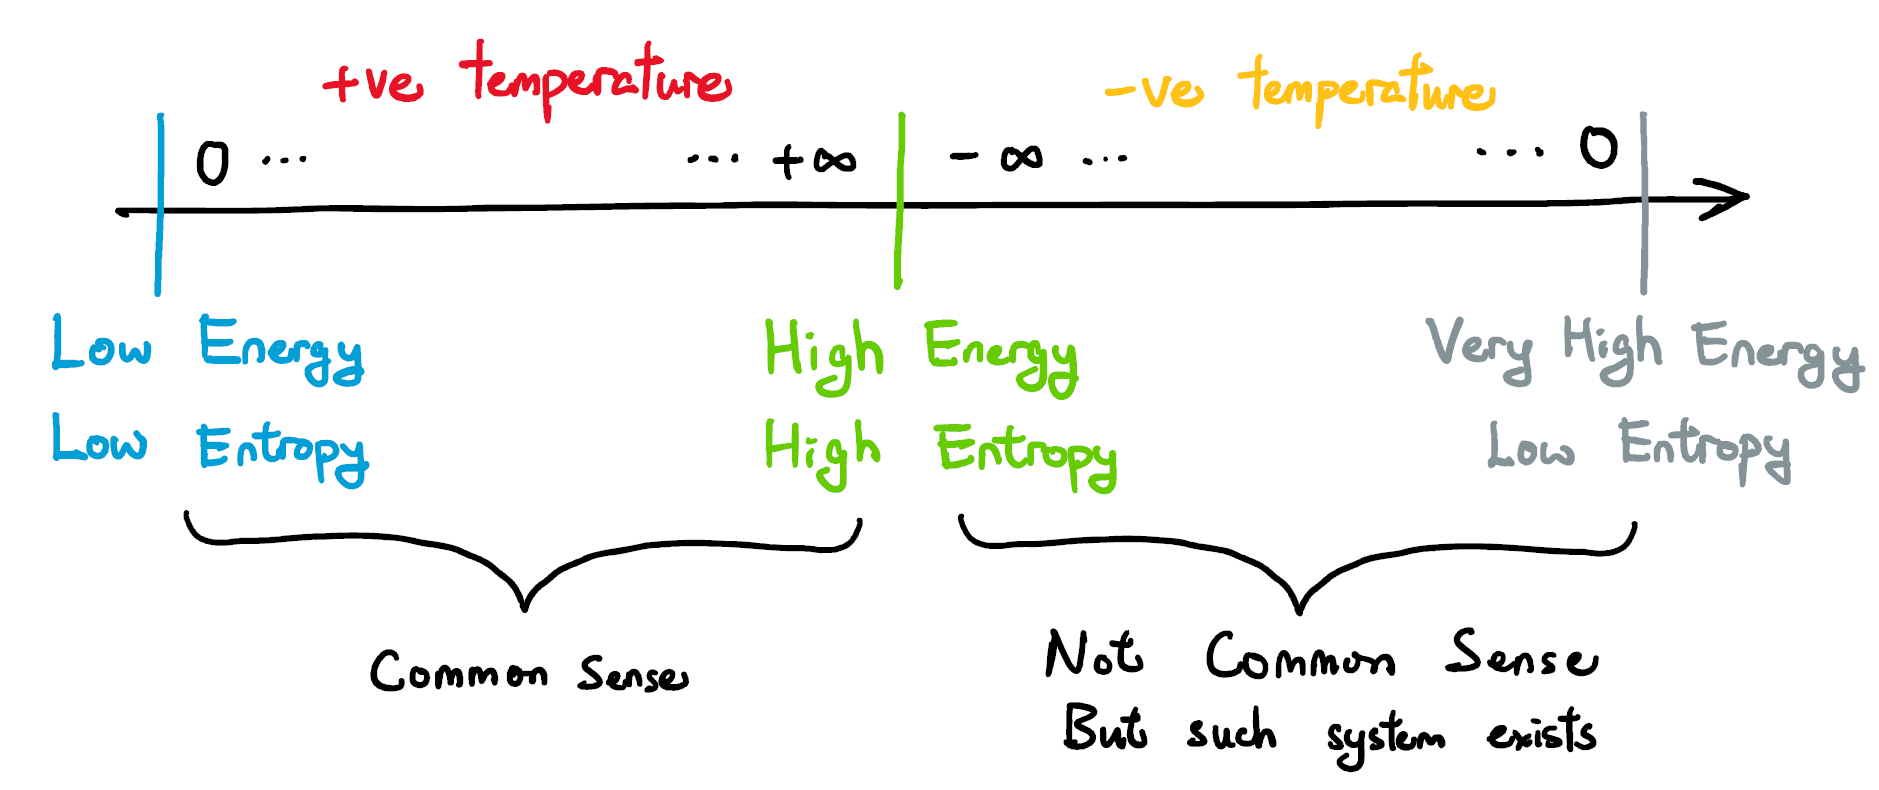 +ve temperature -ve temperature
0 ... ... +∞ -∞ ... ... 0
Low Energy High Energy Very High Energy
Low Entropy High Entropy Low Entropy
Common Sense Not Common Sense
But such system exists